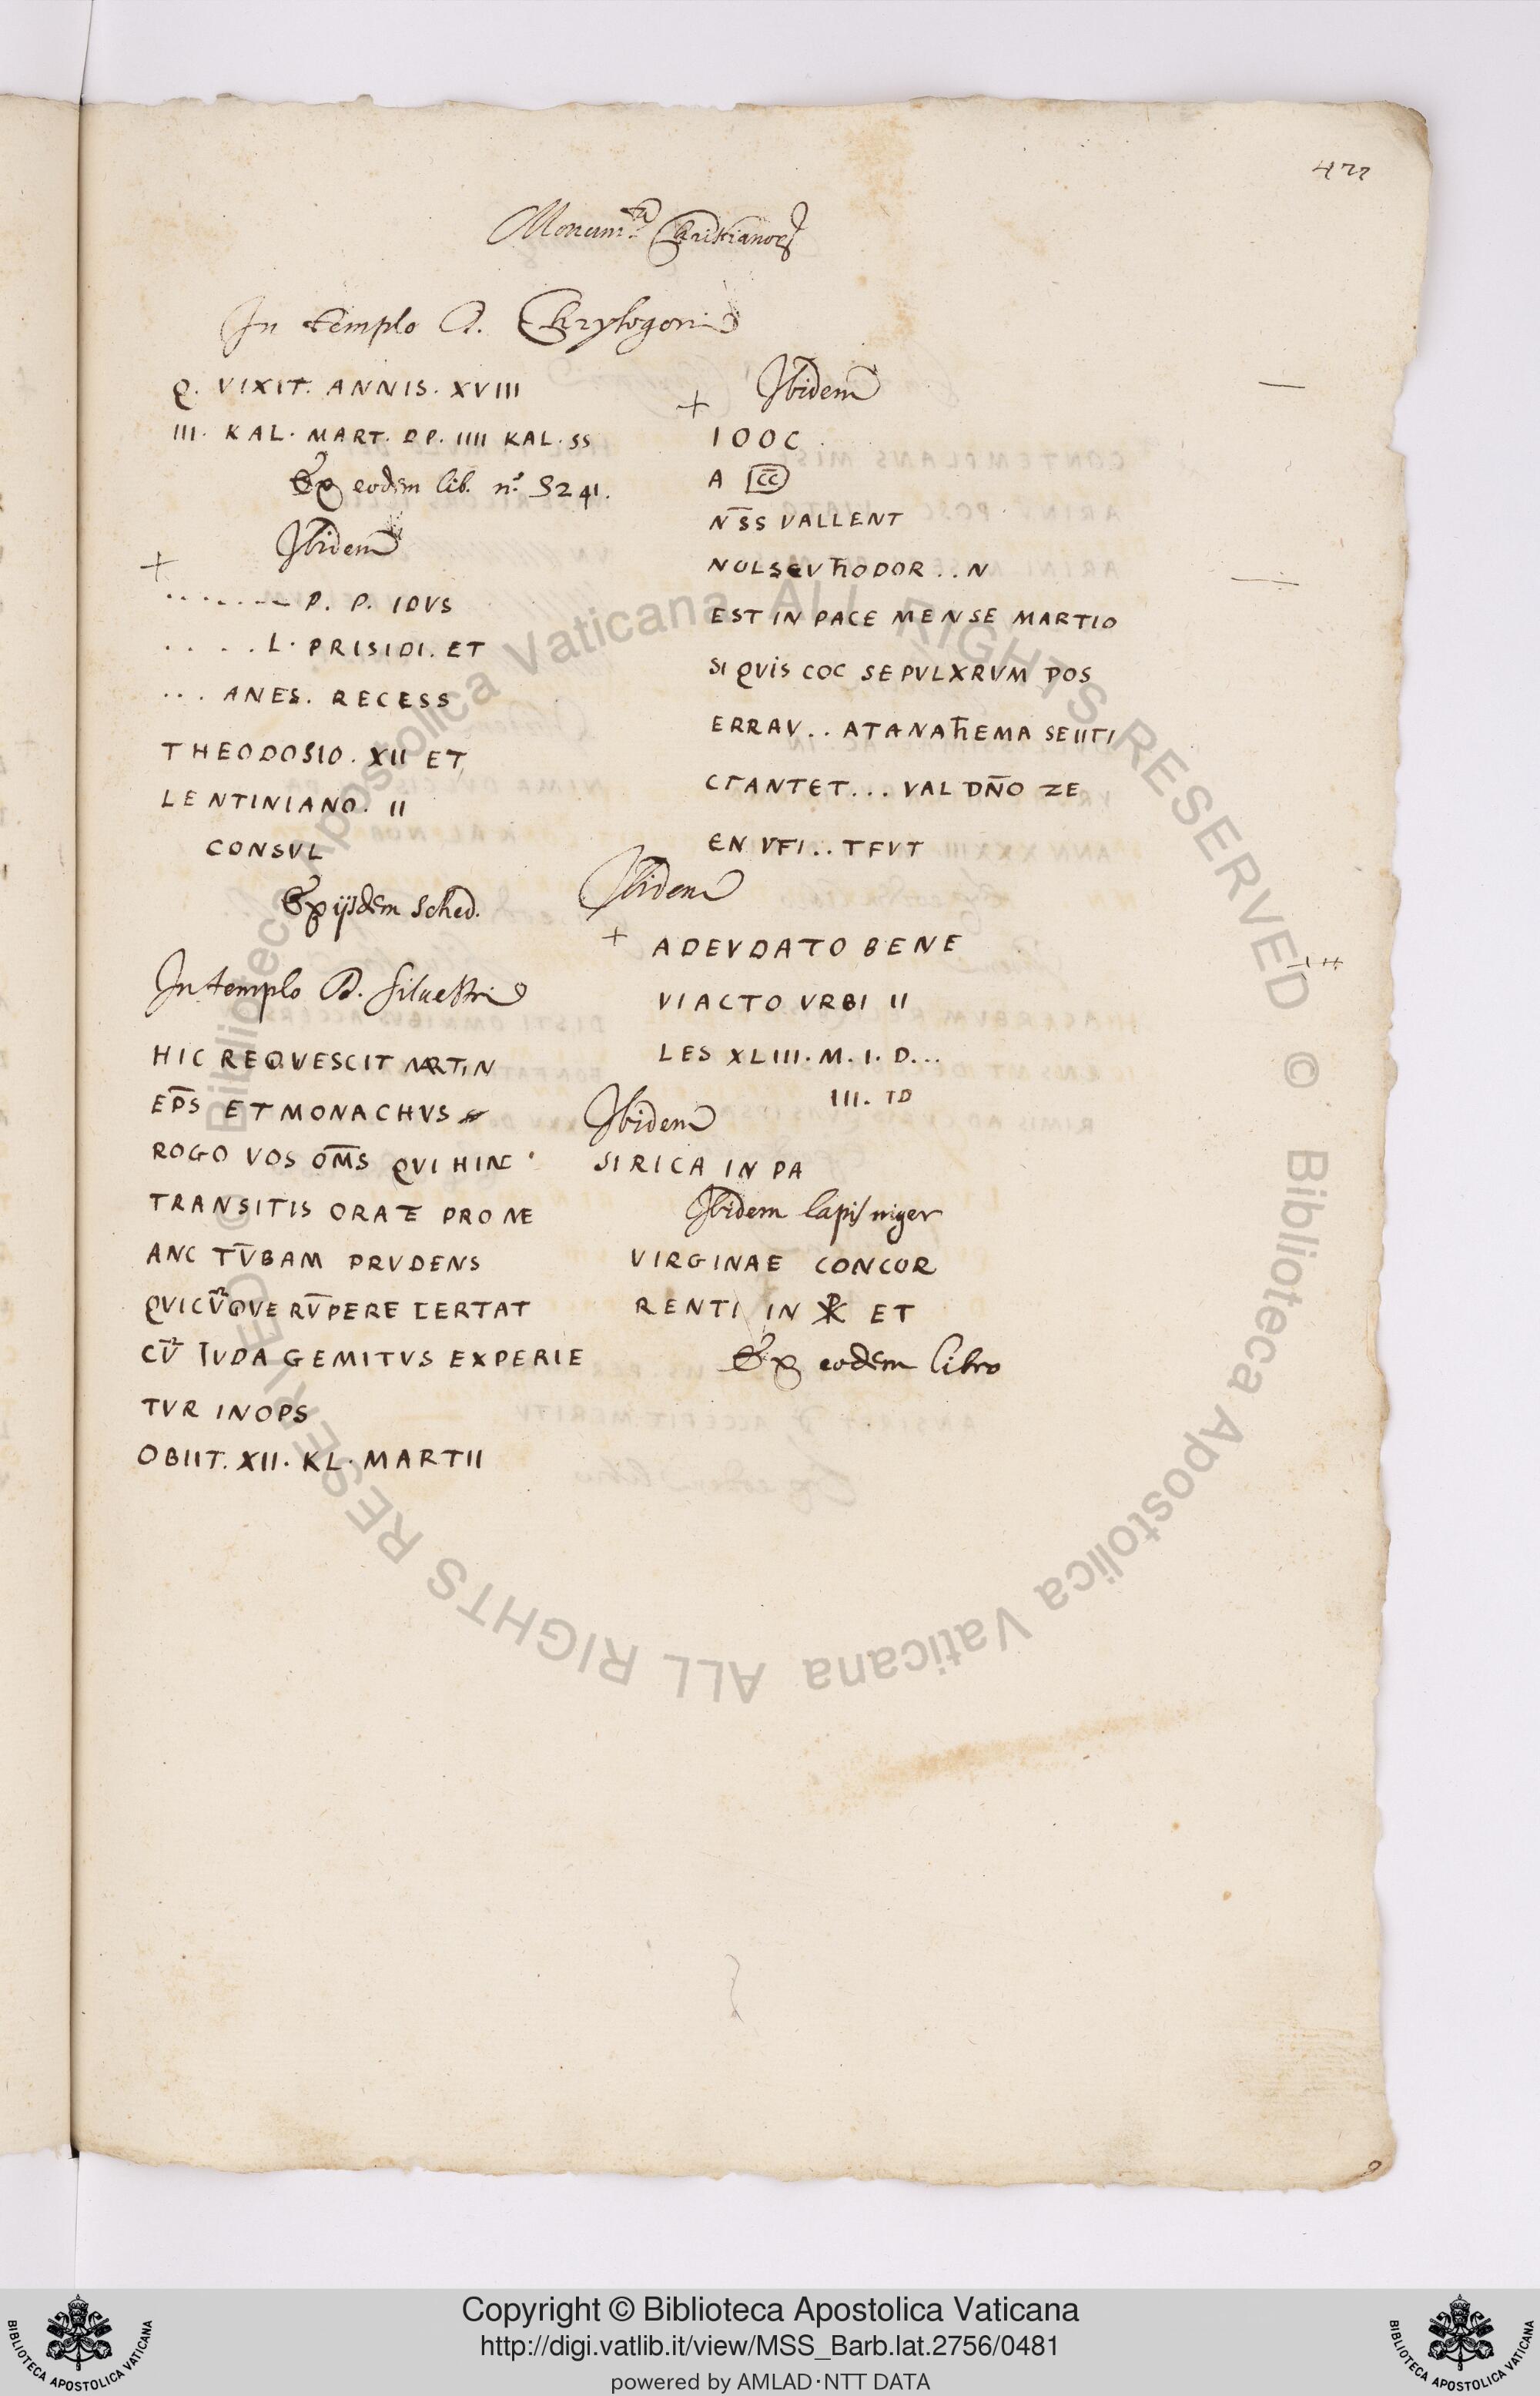 477
Monum.ta Christianor
In templo D. Chrysogoni
Q. VIXIT. ANNIS. XVIII
III. KAL. MART. DP. IIII KAL. SS
Ex eodem lib. n.o 5241.
Ibidem
+
....... P. P. IDVS
..... L. PRISIDI. ET
... ANES. RECESS
THEODOSIO. XII ET
LENTINIANO. II
CONSVL
Ex ijsdem sched.
In templo D. Siluestri
HIC REQVESCIT MARTIN
EP̅S ET MONACHVS
ROGO VOS OM̅S QVI HINC
TRANSITIS ORATE PRO ME
ANC TV̅BAM PRVDENS
QVICV̅QVE RV̅PERE CERTAT
CV̅ IVDA GEMITVS EXPERIE
TVR INOPS
OBIIT. XII. KL. MARTII
Ibidem
+
IOOC
A C̅C̅
N̅SS VALLENT
NOLSEVħODOR..N
EST IN PACE MENSE MARTIO
SI QVIS COC SEPVLXRVM POS
ERRAV.. ATANAħEMA SEIITI
CTANTET... VAL DN̅O ZE
EN VFI.. TFVT
Ibidem
+ ADEVDATO BENE
VIACTO VRBI II
LES XLIII. M. I. D...
III. ID
Ibidem
SIRICA IN PA
Ibidem lapis niger
VIRGINAE CONCOR
RENTI IN ☧ ET
Ex eodem libro
© Biblioteca Apostolica Vaticana ALL RIGHTS RESERVED © Biblioteca Apostolica Vaticana ALL RIGHTS RESERVED
Copyright © Biblioteca Apostolica Vaticana
http://digi.vatlib.it/view/MSS_Barb.lat.2756/0481
powered by AMLAD·NTT DATA
BIBLIOTECA APOSTOLICA VATICANA
BIBLIOTECA APOSTOLICA VATICANA